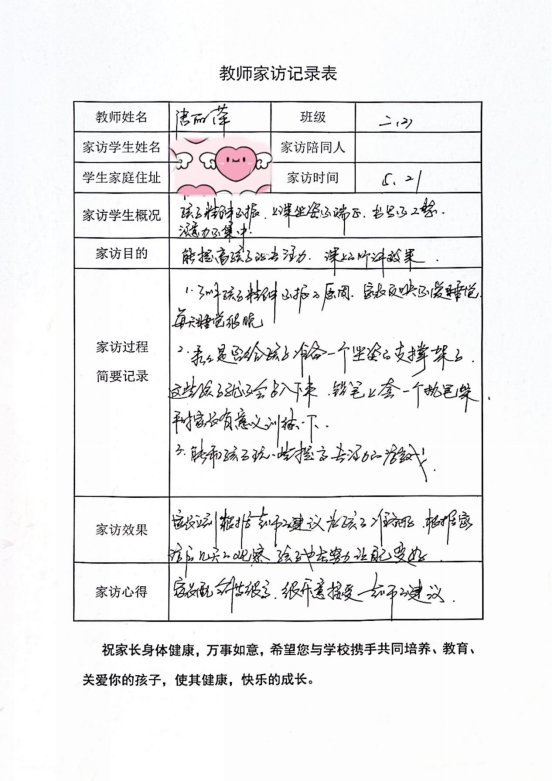 教师家访记录表
教师姓名 唐丽萍 班级 二、(2)
家访学生姓名 家访陪同人
学生家庭住址 家访时间 5.21
家访学生概况 孩子精神不振、上课坐姿不端正、书写不工整、
注意力不集中.
家访目的 能提高孩子的专注力、课上的听课效果.
1.了解孩子精神不振的原因.家长反映不爱睡觉.
每天睡觉很晚.
家访过程
简要记录
2.看是否给孩子准备一个坐姿的支撑架子.
这些孩子就不会趴下来.铅笔上套一个
平时家长有意义训练一下.
3.陪孩子玩一些提高专注力的游戏.
家访效果 老师的建议为孩子准备好.根据家
访后几天的观察.孩子
家访心得 家长配合性很高.很乐意接受老师的建议.
祝家长身体健康，万事如意，希望您与学校携手共同培养、教育、
关爱你的孩子，使其健康，快乐的成长。